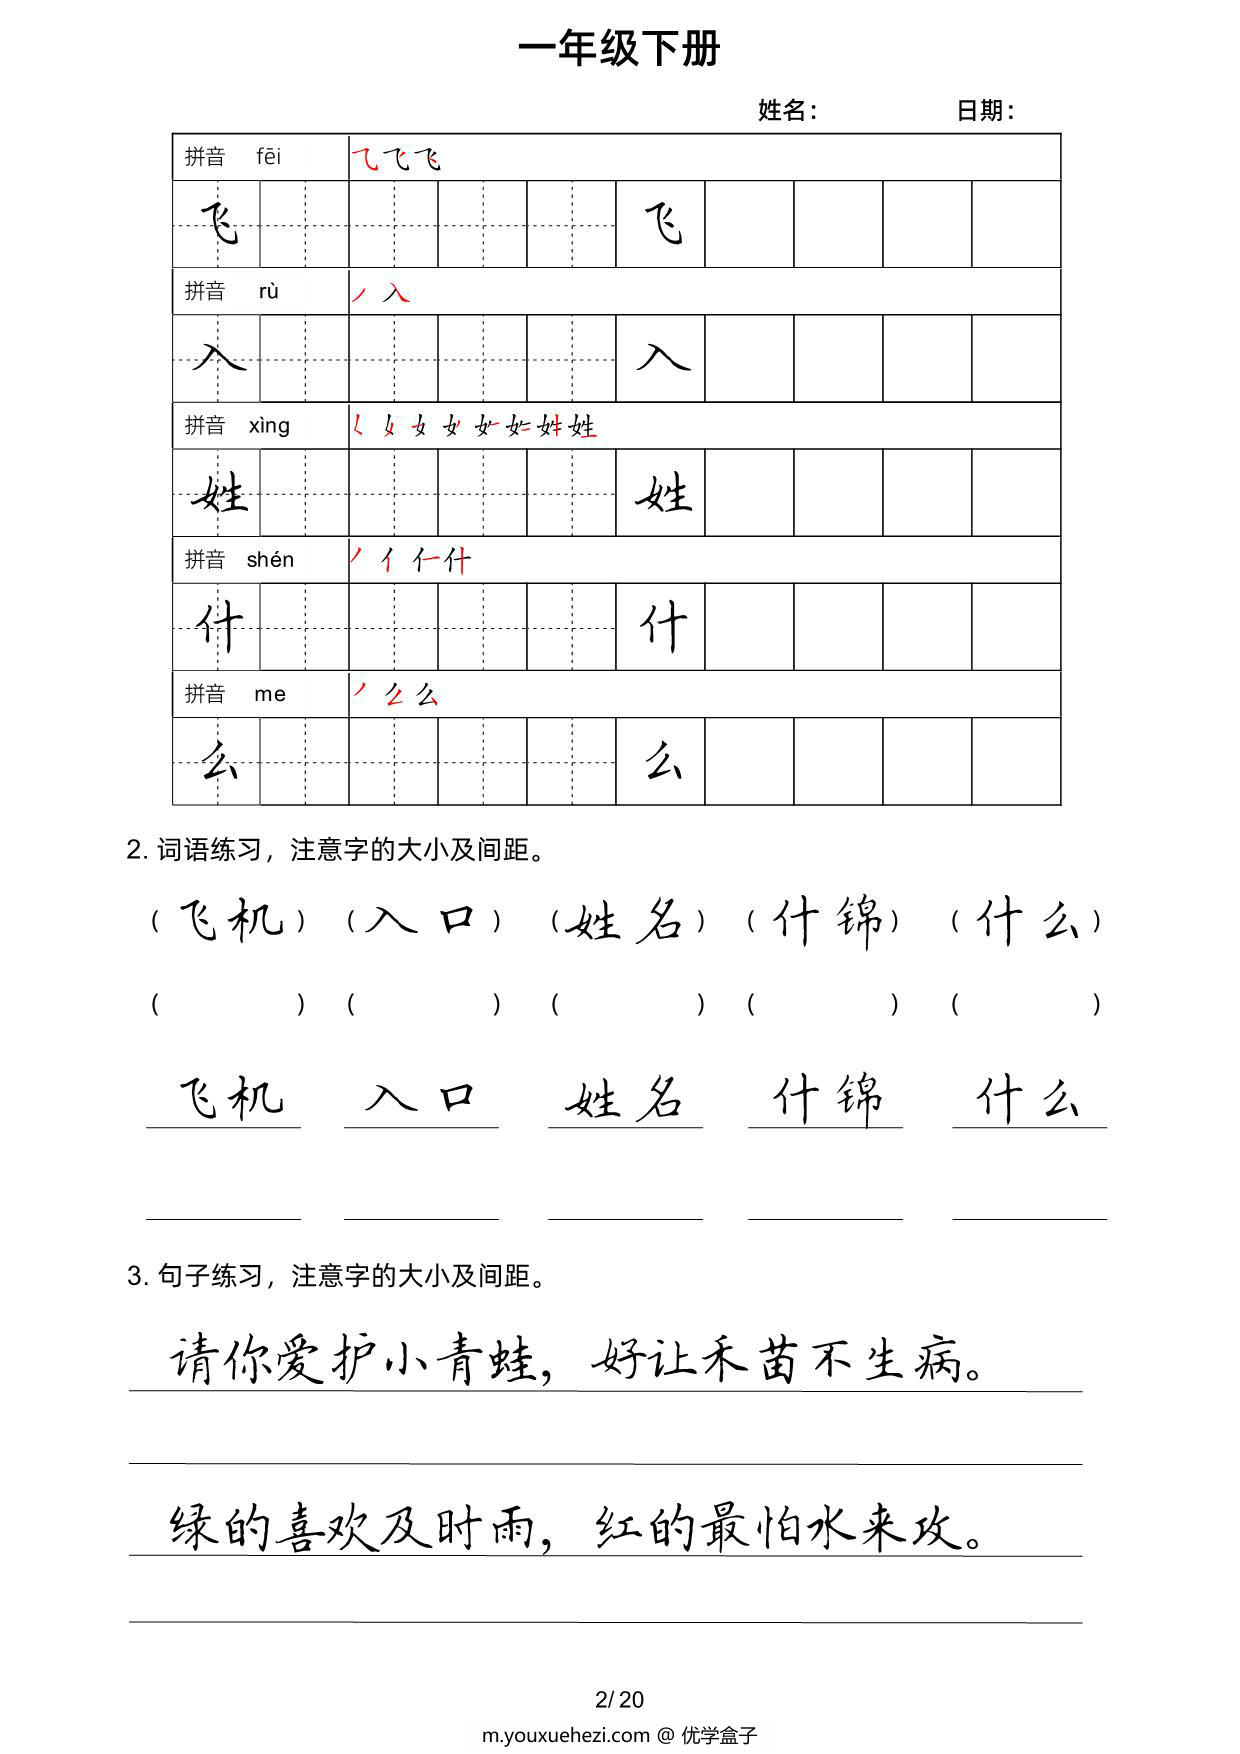 一年级下册
姓名： 日期：
拼音 fēi
飞 飞
拼音 rù
入 入
拼音 xìng
姓 姓
拼音 shén
什 什
拼音 me
么 么
2. 词语练习，注意字的大小及间距。
（飞机）（入口）（姓名）（什锦）（什么）
（ ）（ ）（ ）（ ）（ ）
飞机 入口 姓名 什锦 什么
3. 句子练习，注意字的大小及间距。
请你爱护小青蛙，好让禾苗不生病。
绿的喜欢及时雨，红的最怕水来攻。
2/ 20
m.youxuehezi.com @ 优学盒子